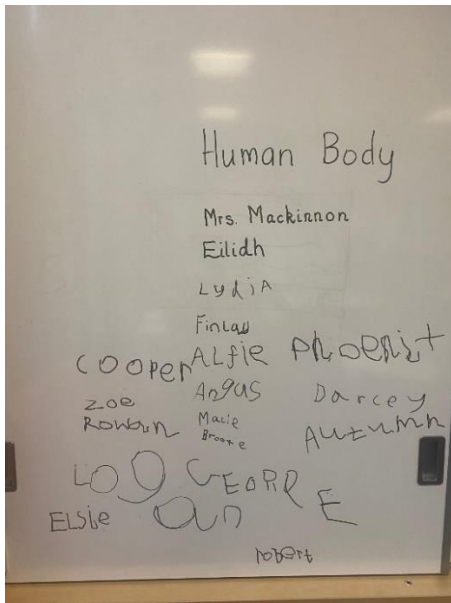 Human Body
Mrs. Mackinnon
Eilidh
LydiA
Finlay
Cooper ALfie Phoenix
Angus Darcey
Zoe
Macie
Rowan Autumn
Brooke
LOg GEORgE
Elsie an
robert